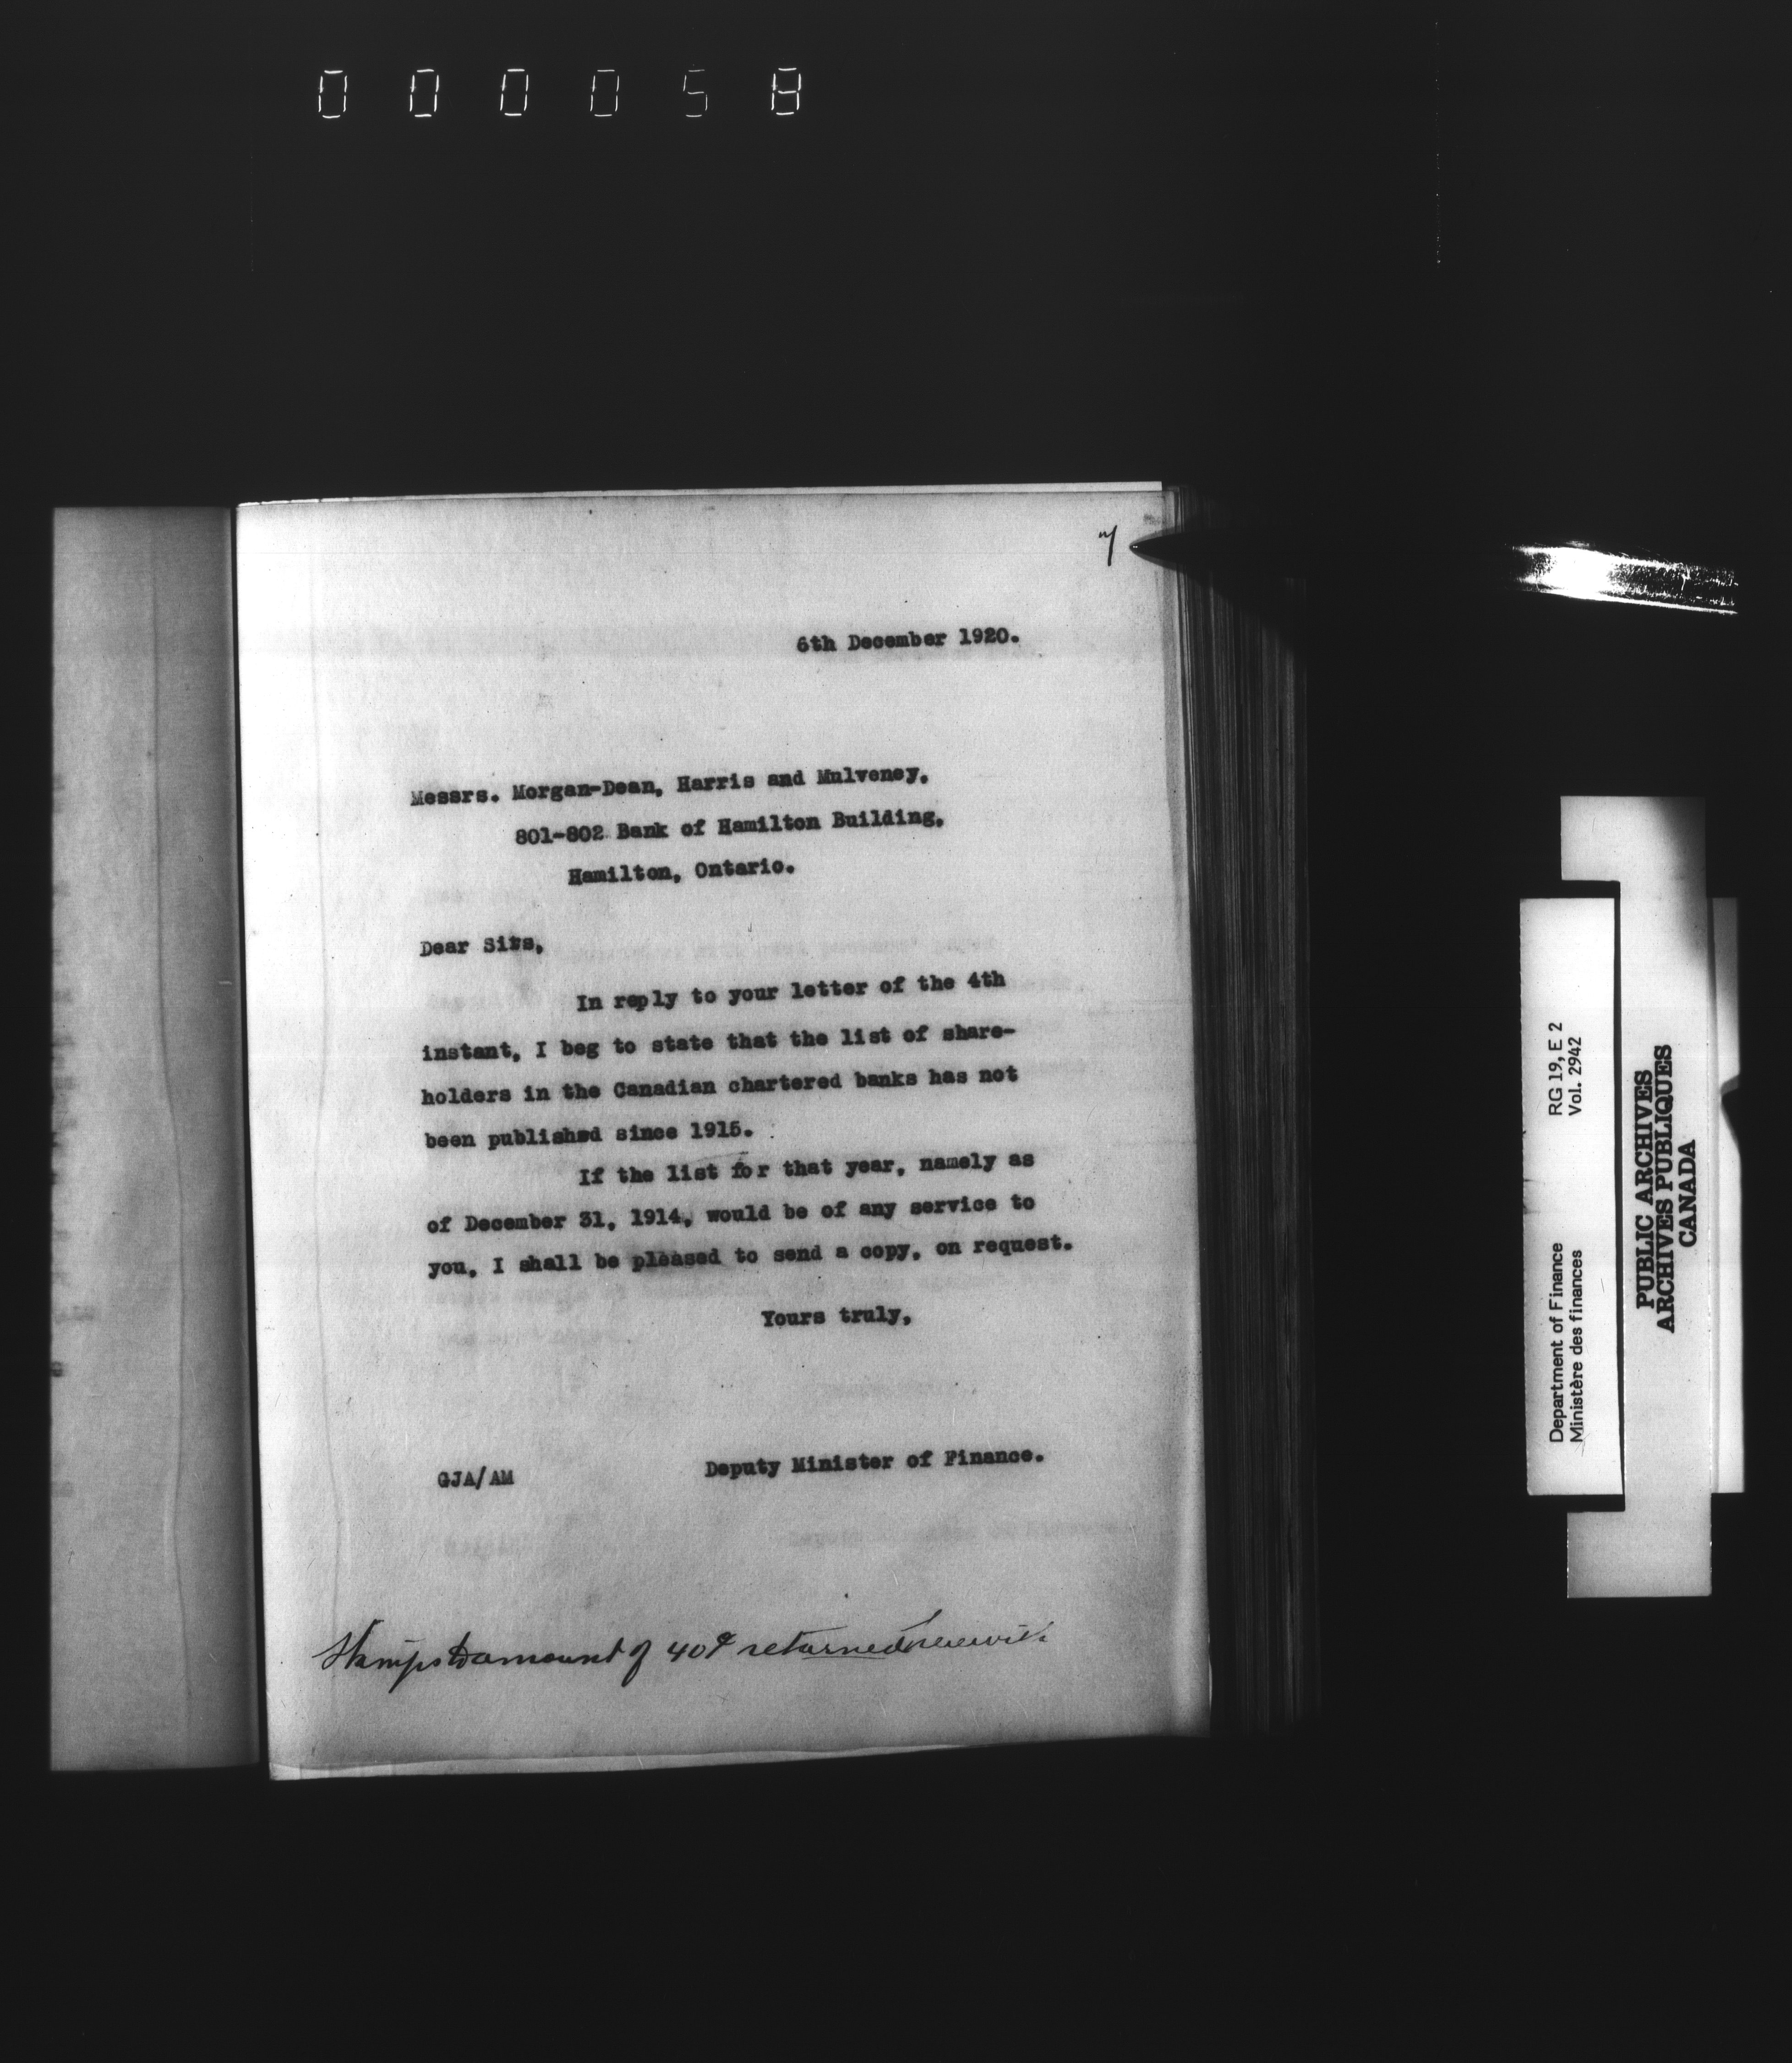 000058
7
6th December 1920.
Messrs. Morgan-Dean, Harris and Mulveney,
801-802 Bank of Hamilton Building,
Hamilton, Ontario.
Dear Sirs,
In reply to your letter of the 4th
instant, I beg to state that the list of share-
holders in the Canadian chartered banks has not
been published since 1915.
If the list for that year, namely as
of December 31, 1914, would be of any service to
you, I shall be pleased to send a copy, on request.
Yours truly,
GJA/AM Deputy Minister of Finance.
Stamps to amount of 40¢ returned herewith
Department of Finance RG 19, E 2
Ministère des finances Vol. 2942
PUBLIC ARCHIVES
ARCHIVES PUBLIQUES
CANADA